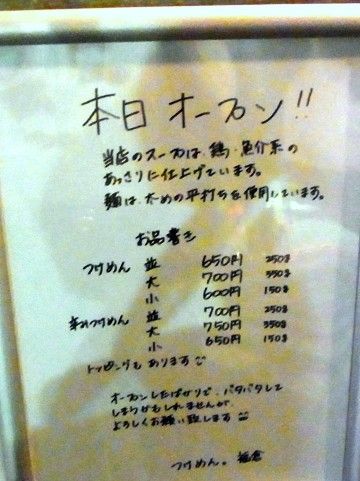 本日オープン!!
当店のスープは、鶏・魚介系の
あっさりに仕上げています。
麺は、太めの平打ちを使用しています。
お品書き
つけめん 並 650円 250g
大 700円 350g
小 600円 150g
辛みつけめん 並 700円 250g
大 750円 350g
小 650円 150g
トッピングもあります
オープンしたばかりで、バタバタして
しまうかもしれませんが、
よろしくお願い致します
つけめん。